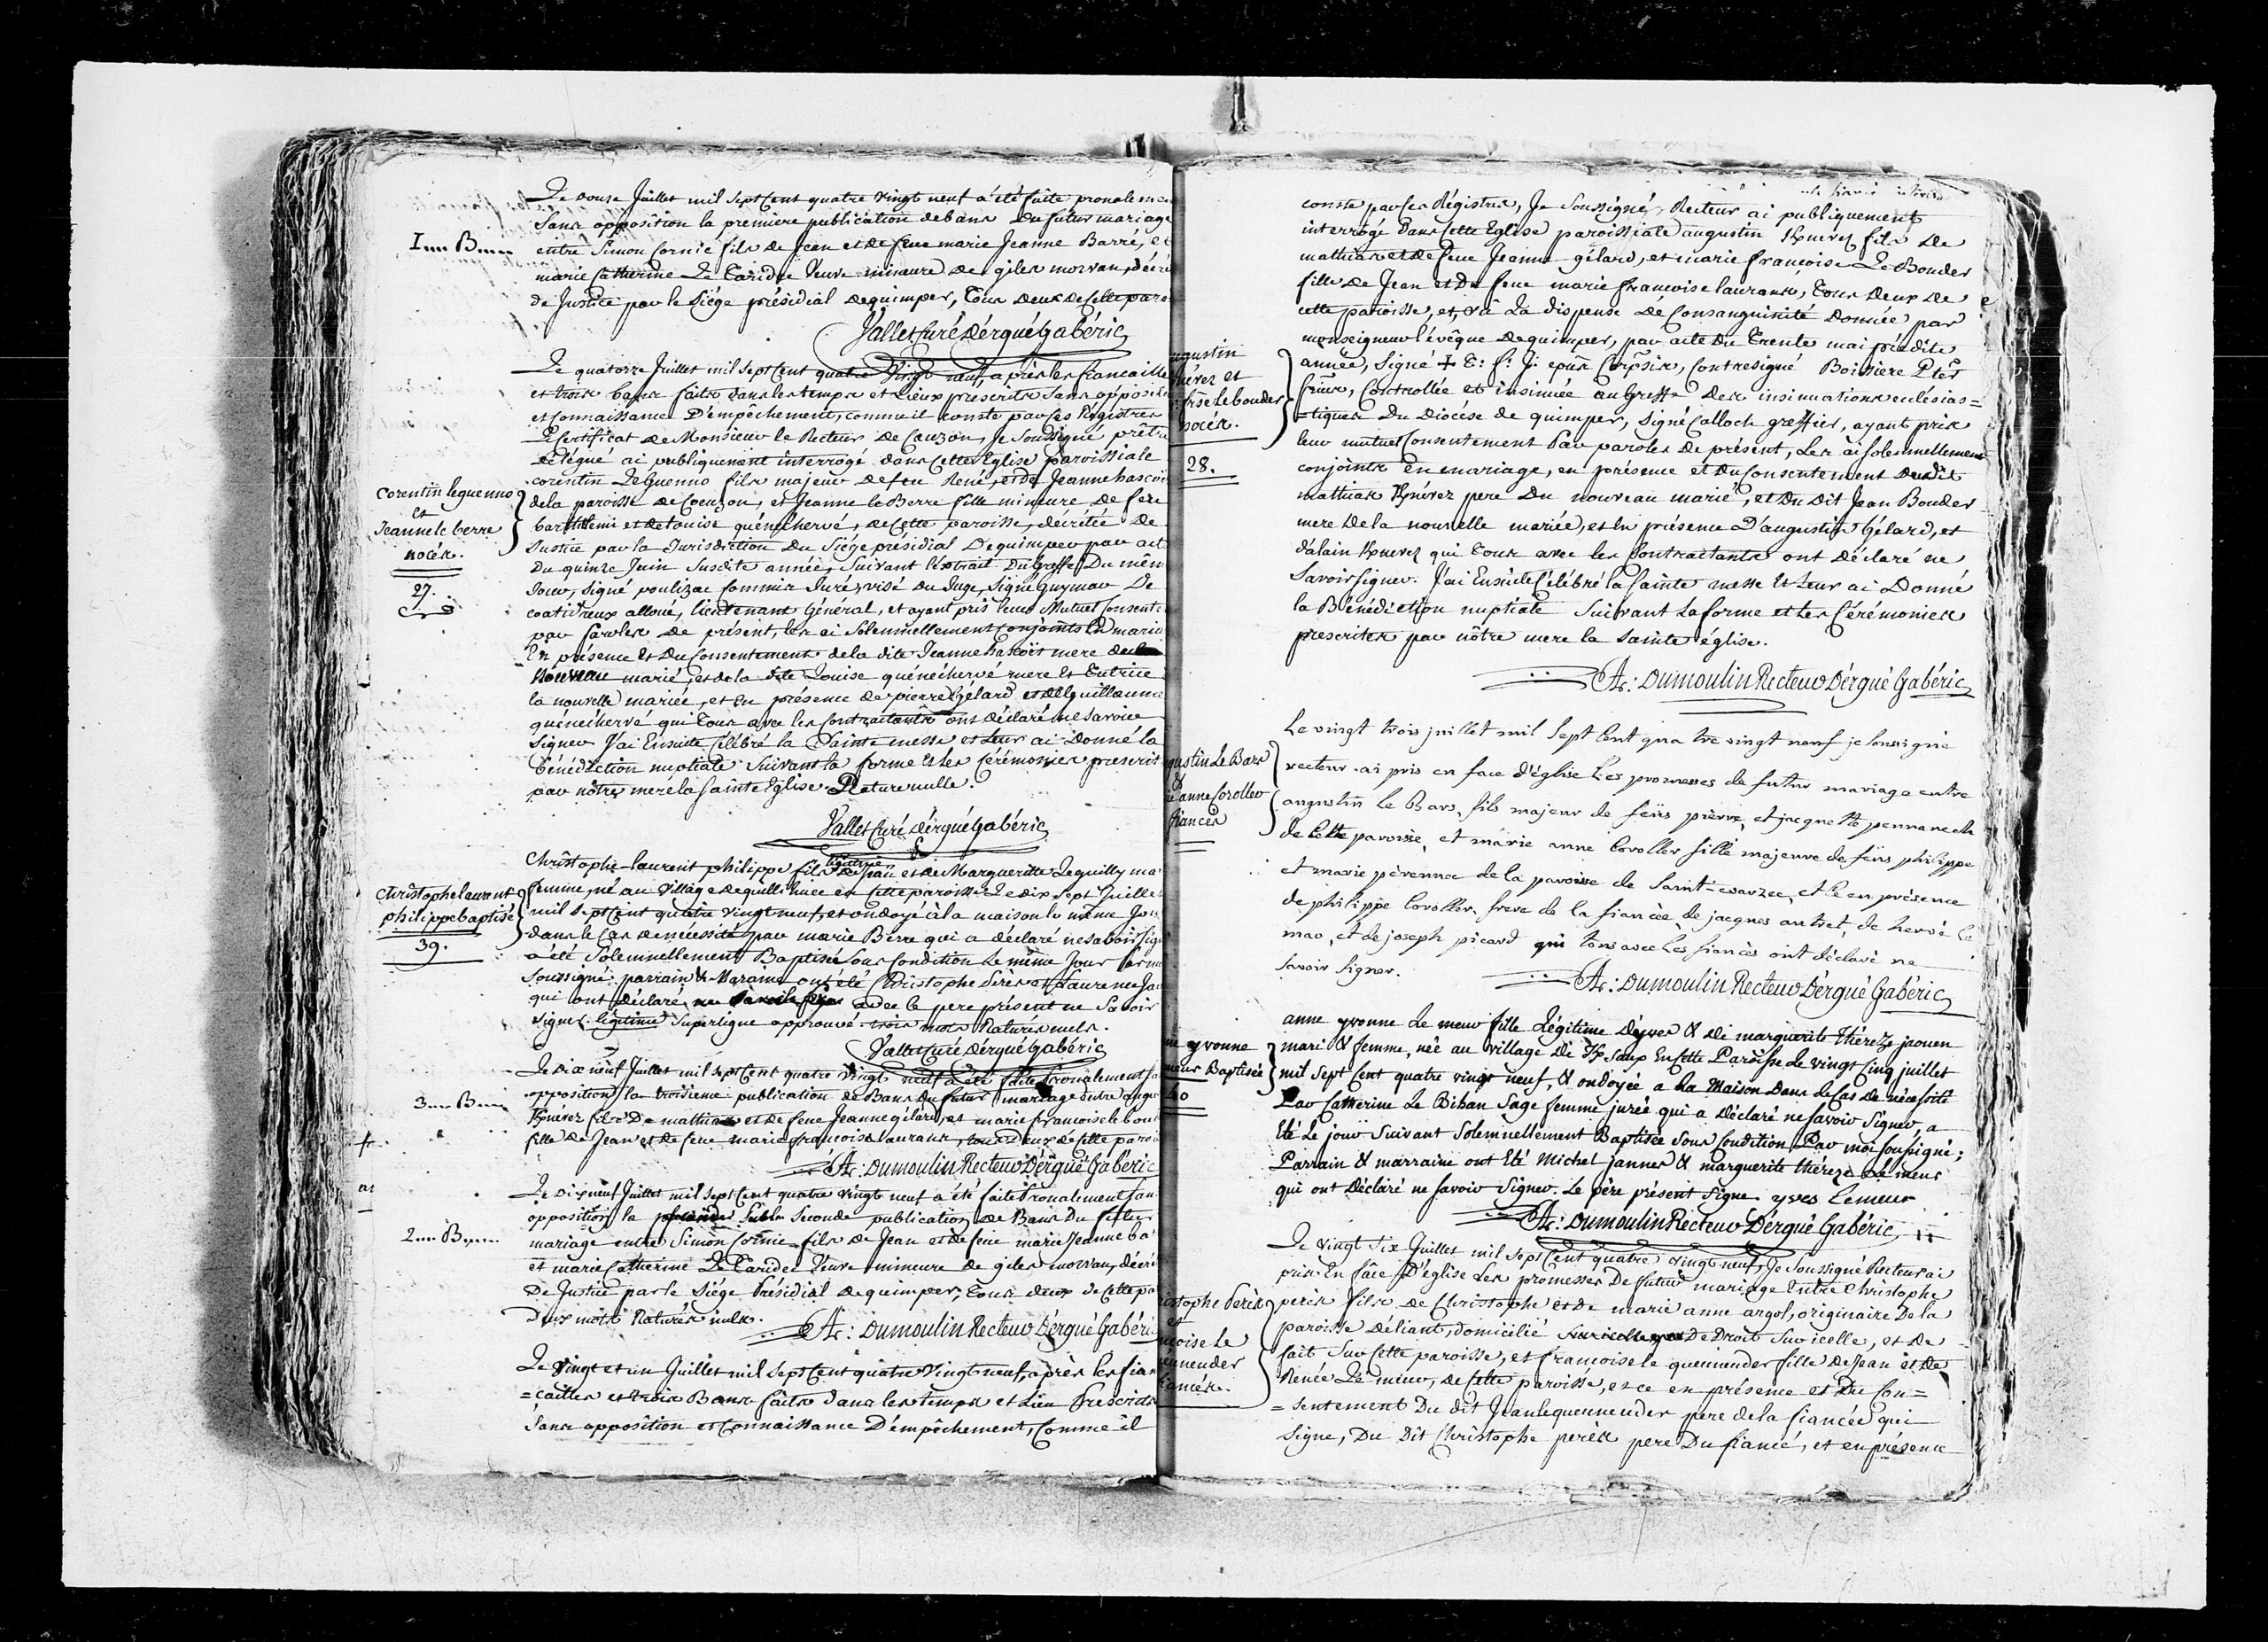 Le douze Juillet mil sept cent quatre vingt neuf a été faite pronalemen
Sans opposition la premiere publication de bans du futur mariage
I.... B......
entre Simon Cornic fils de Jean et de feue marie Jeanne Barré, et
marie Catherine Le Caridec Veuve mineure de giles morvan, décré
de Justice par le Siége présidial de quimper, Tous deux de cette paro
Vallet Curé D'érgué Gabéric
Le quatorze Juillet mil sept cent quatre Vingt neuf, après les fiancaille
et trois bans faits dans les temps et Lieux prescrits sans opposit
et connaissance D'empêchement, comme il conste par les Régistres
et Certificat de Monsieur le Recteur de Cauzon, Je Soussigné prêtre
délégué ai publiquement interrogé dans cette Eglise paroissiale
corentin Leguenno fils majeur de feu René, et de Jeanne hascoët
Corentin leguenno
et
Jeanne le berre
nocés.
27.
de la paroisse de Coeuzon, et Jeanne le Berre fille mineure de feu
barthelemi et de Louise quénéhervé, de cette paroisse, decrétée de
Justice par la Jurisdiction du Siége présidial De quimper par acte
Du quinze Juin Susdite année, Suivant l'Extrait du Greffe Du mêm
Jour, signé poulizac Commis Juré, visé du Juge, Signé Guymar De
coatidreux alloué, lieutenant Général, et ayant pris leur Mutuel Consente
par paroles de présent, les ai Solemnellement conjoints En mariage
En présence et du Consentement de la dite Jeanne hascoët mere du
Nouveau marié, et de la dite Louise quénéhervé mere et Tutrice
la nouvelle mariée, et en présence de pierre Gélard et de Guillaume
quénéhervé qui tous avec les Contractants ons déclaré ne Savoir
Signer J'ai Ensuite Célébré la Sainte messe et leur ai Donné la
bénédiction nuptiale Suivant la forme et les Cérémonies prescrit
par nôtre mere la Sainte Eglise. Rature nulle.
Vallet Curé D'érgué Gabéric
légitime
Christophe-laurent philippe fils de Jean et de Marguerite Le quilly ma
Christophe laurent
philippe baptisé
39.
femme, né au Village de quillihuec en cette paroisse Le dix Sept Juillet
mil sept cent quatre vingt neuf, et ondoyé à la maison le même Jour
dans le Cas de nécessité par marie Berre qui a déclaré ne savoir sign
a été Solemnellement Baptisé sous Condition Le même Jour par mo
Soussigné: parrain & Maraine ont été Christophe Pérès et Laurence Ja
qui ont déclaré avec le pere présent ne Savoir
signer. légitime Superligne approuvé trois mots Raturés nuls.
Vallet Curé D'érgué Gabéric
Le Dix neuf Juillet mil sept cent quatre Vingt neuf a été faite Pronalement sa
3.... B.....
opposition la troisieme publication de Bans du futur mariage entre Augus
Kpnérez fils De mathias et de feue Jeanne gélard, et marie francoise le boud
fille de Jean et de feue marie francoise laurans, tous Deux de cette paroi
Ar: Dumoulin Recteur D'érgué Gabéric
Le Dix neuf Juillet mil sept cent quatre Vingt neuf a été faite Pronalement San
opposition la Seconde publication de Bans Du futur
2.... B......
mariage entre Simon Cornic fils de Jean et de feue marie Jeanne ba
et marie Catherine Le Caridec Veuve mineure de giles morvan, décré
De Justice par le Siége Présidial de quimper, Tous deux de cette pa
Deux mots Raturés nuls.
Ar: Dumoulin Recteur D'érgué Gabéri
Le Vingt et un Juillet mil sept cent quatre Vingt neuf, après les fian
=cailles et trois Bans faits dans les temps et Lieu Prescrits
Sans opposition et Connaissance D'empêchement, Comme il
conste par les Régistres, Je Soussigné, Recteur ai publiquement
interrogé dans cette Eglise paroissiale augustin Kpnérez fils de
mathias et de feue Jeanne gélard, et marie francoise Le Bouder
fille de Jean et de feue marie francoise laurans, Tous deux de
cette paroisse, et, vû La dispense de Consanguinité donnée par
monseigneur l'évêque de quimper, par acte du Trente mai prédite
ugustin
nérez et
frse Le bouder
nocés.
28.
année, Signé + T: f: J: epûs Corisôs, Contresigné Boissiere Ptre
, Controllée et insinuée au Greffe Des insinuations eclésias=
=tiques Du Diocése de quimper, Signé Calloch greffier, ayant pris
leur mutuel Consentement Par paroles de présent, Les ai solemnellement
conjoints En mariage, en présence et du Consentement Dudit
mathias Kpnérez pere Du nouveau marié, et Du Dit Jean Bouder
mere De la nouvelle mariée, et En présence D'augustin Gélard, et
d'alain Kpnerez qui Tous avec les Contractants ont Déclaré ne
Savoir signer. J'ai Ensuite Célébré la Sainte messe et Leur ai Donné
la Bénédiction nuptiale Suivant La forme et Les Cérémonies
prescrites par nôtre mere la Sainte église.
Ar: Dumoulin Recteur D'érgué Gabéric
Le vingt trois juillet mil sept cent quatre vingt neuf je soussigné
gustin Le Bars
et
anne Corollev
fiancés
recteur ai pris en face d'église les promesses de futur mariage entre
augustin Le Bars, fils majeur de feüs pièrre, et jacquette pennanech
de cette paroisse, et mârie anne Coroller fille majeure de feüs philippe
et marie pérennec de la paroisse de Saint-evarzec, et ce en présence
de philippe Coroller frere de la fiancée de jacques autret, de hervé le
mao, et de joseph picard qui tous avec les fiancés ont déclaré ne
savoir signer.
Ar: Dumoulin Recteur D'érgué Gabéric
anne yvonne Le meur fille Légitime d'yves & de marguerite thérèze jaouen
yvonne
meur Baptisée
40
mari & femme, née au village de En cette Paroisse Le vingt cinq juillet
mil sept cent quatre vingt neuf, & ondoyée a La Maison Dans le Cas de nécessité
Par Catherine Le Bihan Sage femme jurée qui a Déclaré ne savoir Signer, a
Eté Le jour Suivant Solemnellement Baptisée Sous Condition Par moi soussigné;
Parrain & marraine ont Eté Michel jannes & marguerite thérèze Le meur
qui ont Déclaré ne savoir Signer. Le père présent Signe. yves Lemeur
Ar: Dumoulin Recteur D'érgué Gabéric
Le vingt Six Juillet mil sept cent quatre vingt neuf, Je soussigné Recteur ai
pris En fâce D'église Les promesses De futur mariage Entre Christophe
istophe Pérès
et
coise Le
ennender
fiancés.
perès fils de Christophe et de marie anne argol, originaire De la
paroisse d'éliant, domicilié De Droit sur icelle, et De
fait Sur cette paroisse, et francoise le quennender fille de Jean et De
Renée Le meur, de cette paroisse, et ce en présence et Du Con=
=sentement Du dit Jean lequennender pere de la fiancée qui
Signe, Du Dit Christophe perès pere Du fiancé, et en présence